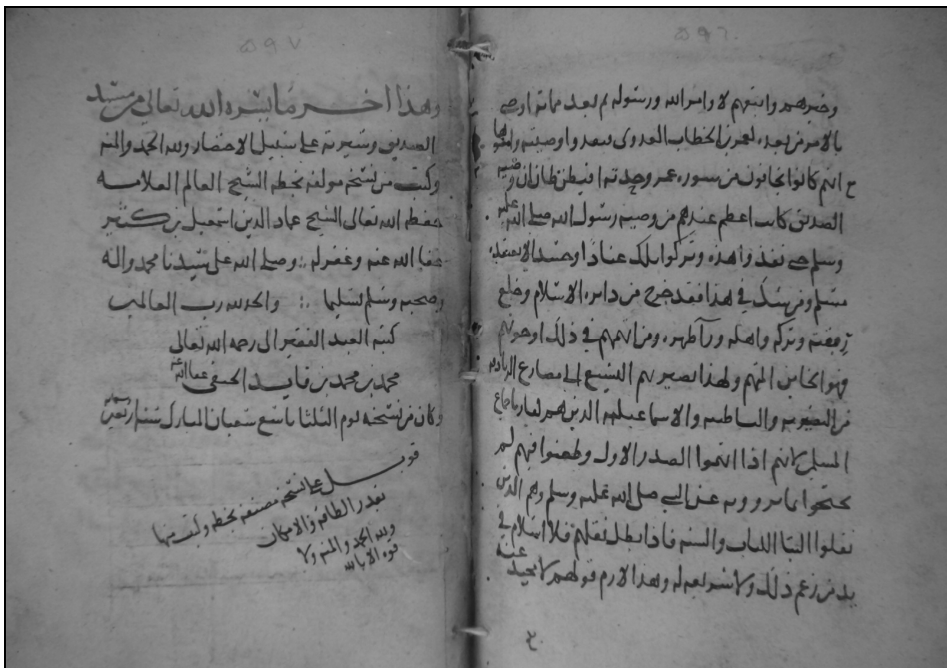 ٥٩٦
وخيرهم واتبعهم لاوامر الله ورسوله لم بعد مماته اوصى
بالامر من بعده لعمر بن الخطاب العدوي فبعد وا وصيته
انهم كانوا يخافون من سورة عمر وحدته افيظن ظان ان وصيه
الصديق كانت اعظم عندهم من وصيه رسول الله صلى الله عليه
وسلم حتى نفذوا هذه وتركوا تلك عنادا وضدا لا يعتقد
مسلم ومن شك في هذا فقد خرج من دايره الاسلام وخلع
ربقته وتركه واهله ورآ ظهره ومن اتهمهم في ذلك او خونهم
فهو الخاين المتهم ولهذا يصير بهم التشيع الى مصارع الزنادقه
من النصيريه والباطنيه والاسماعيليه الذين هم كفار باجماع
المسلمين لانهم اذا اتهموا الصدر الاول وطعنوا فيهم لم
يحتجوا بما يروونه عن النبي صلى الله عليه وسلم وهم الذين
نقلوا الينا الكتاب والسنه فاذا بطل نقلهم فلا اسلام في
يد من زعم ذلك ولا شريعه له وهذا لازم قولهم لا محيد عنه
٥٩٧
وهذا اخر ما يسره الله تعالى من مسند
الصديق وسيرته على سبيل الاختصار ولله الحمد والمنه
وكتبت من نسخه مولفه بخطه الشيخ العالم العلامه
حفظه الله تعالى الشيخ عماد الدين اسمعيل بن كثير
عفا الله عنه وغفر له وصلى الله على سيدنا محمد واله
وصحبه وسلم تسليما والحمد لله رب العالمين
كتبه العبد الفقير الى رحمه الله تعالى
محمد بن محمد بن قايد الحنفي عفا الله عنه
وكان من نسخه يوم الثلثا تاسع شعبان المبارك سنه
قوبل على نسخه مصنفه بخطه وكتب منها
بقدر الطاقه والامكان
ولله الحمد والمنه ولا
قوه الا بالله